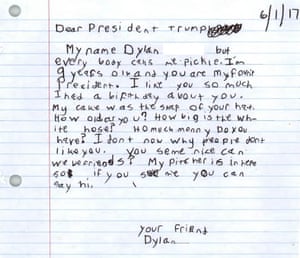 6/1/17
Dear President Trump
My name Dylan but
every body cals me pickle. I'm
9 years old and you are my favrit
President. I like you so much
I had a birthday about you.
My cake was the shap of your hat.
How old are you? How big is the wh
ite hose? Ho much monny Do you
have? I don't now why people don't
like you. You seme nice can
we be friends? My picher is in here
so if you see me you can
say hi.
your Friend
Dylan